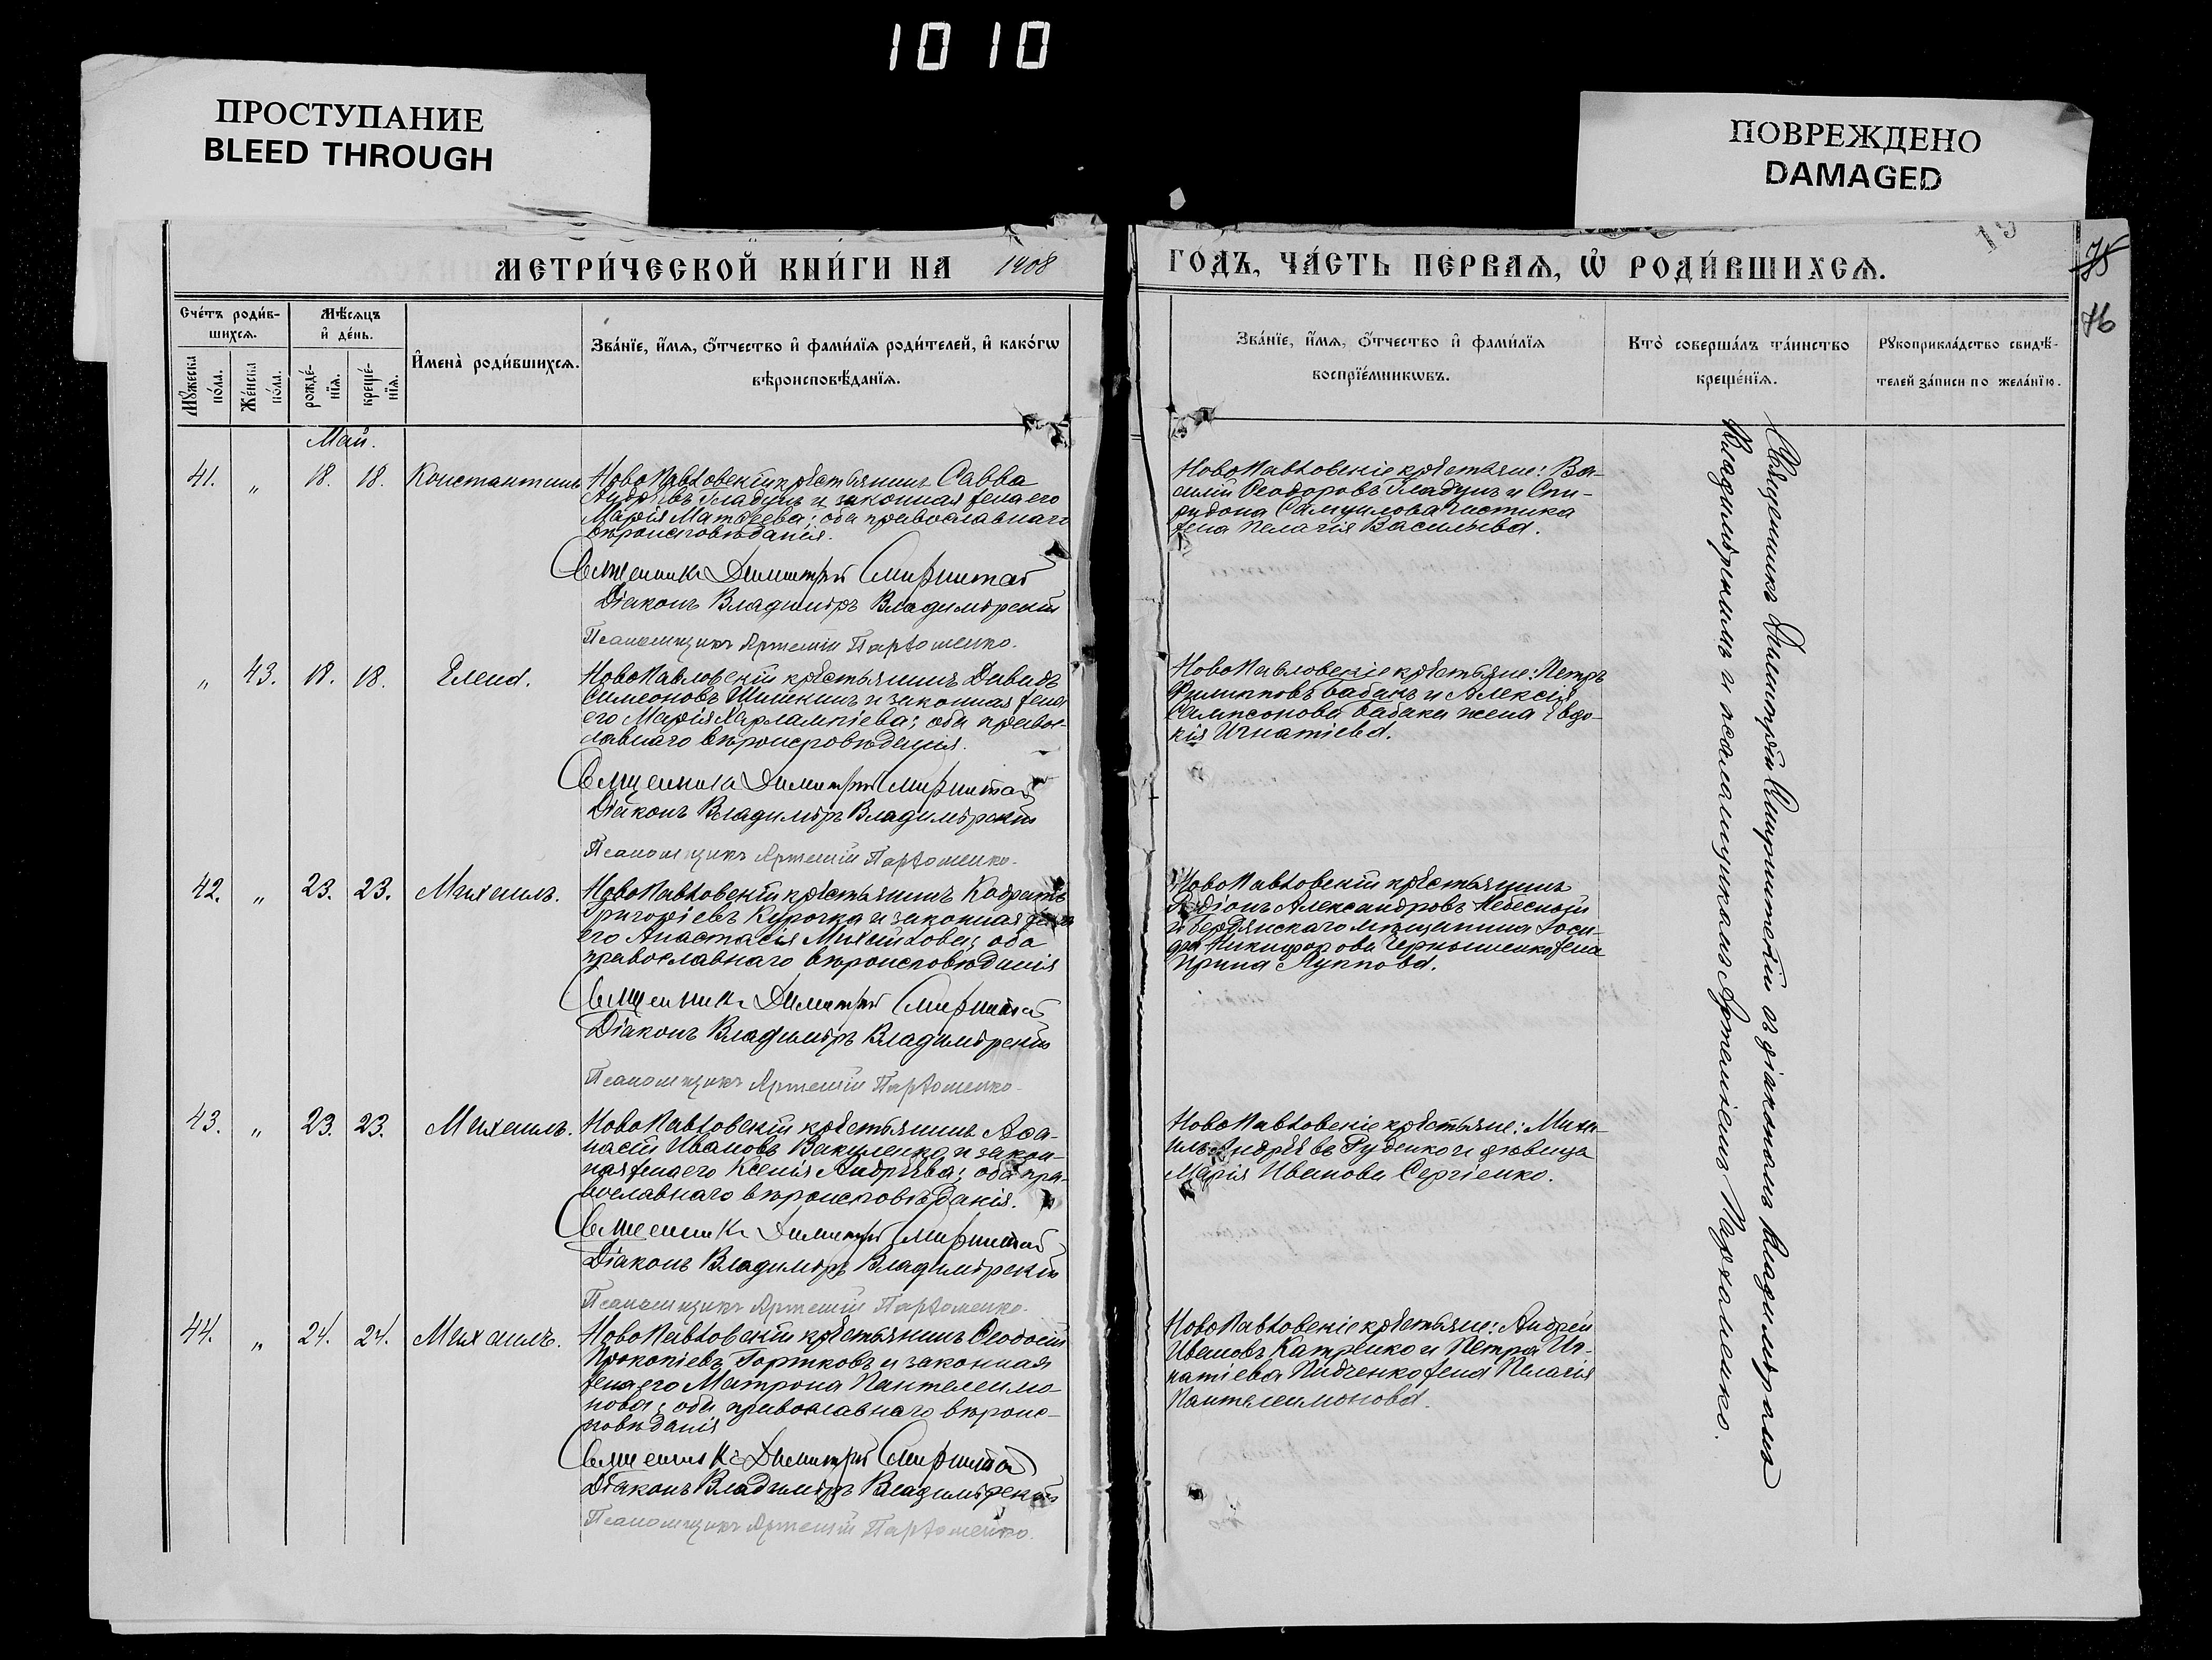 1010
ПРОСТУПАНИЕ
BLEED THROUGH
ПОВРЕЖДЕНО
DAMAGED
МЕТРИ́ЧЕСКОЙ КНИ́ГИ НА 1908
ГОДЪ, ЧА́СТЬ ПЕ́РВАѦ, Ѡ҆ РОДИ́ВШИХСѦ.
75
76
Сче́тъ роди́в-
шихсѧ.
Мꙋ́жеска по́ла.
Же́нска по́ла.
Мѣ́сѧцъ
и҆ де́нь.
рожде́-
нїѧ.
креще́-
нїѧ.
И҆мена̀ роди́вшихсѧ.
Зва́нїе, и҆́мѧ, ѻ҆́тчество и҆ фами́лїѧ роди́телей, и҆ како́гѡ
вѣроисповѣ́данїѧ.
Зва́нїе, и҆́мѧ, ѻ҆́тчество и҆ фами́лїѧ
воспрїе́мникѡвъ.
Кто̀ соверша́лъ та́инство
креще́нїѧ.
Рꙋкоприкла́дство свидѣ́-
телей за́писи по жела́нїю.
Май.
41. " 18. 18. Константинъ
НовоПавловскій крестьянинъ Савва
Андреевъ Гладунъ и законная жена его
Марія Матѳеева; оба православнаго
вѣроисповѣданія.
Священникъ Димитрій
Діаконъ Владиміръ Владимірскій
Псаломщикъ Артемій Пархоменко.
НовоПавловскіе крестьяне: Ва-
силій Ѳеодоровъ Гладунъ и Спи-
ридона Самуилова Чистика
жена Пелагія Васильева.
" 43. 18. 18. Елена.
НовоПавловскій крестьянинъ Давидъ
Симеоновъ Шишкинъ и законная жена
его Марія Харлампіева; оба правос-
лавнаго вѣроисповѣданія.
Священникъ Димитрій
Діаконъ Владиміръ Владимірскій
Псаломщикъ Артемій Пархоменко.
НовоПавловскіе крестьяне: Петръ
Филипповъ Бабакъ и Алексія
Сампсонова Бабака жена Евдо-
кія Игнатіева.
42. " 23. 23. Михаилъ.
НовоПавловскій крестьянинъ Кодратъ
Григоріевъ Курочка и законная жена
его Анастасія Михайлова; оба
православнаго вѣроисповѣданія
Священникъ Димитрій
Діаконъ Владиміръ Владимірскій
Псаломщикъ Артемій Пархоменко.
НовоПавловскій крестьянинъ
Родіонъ Александровъ Небесный
и Бердянскаго мѣщанина
Никифорова Чернышенко жена
Ирина Луппова.
43. " 23. 23. Михаилъ.
НовоПавловскій крестьянинъ Аѳа-
насій Ивановъ Вакуленко и закон-
ная жена его Ксенія Андреева; оба пра-
вославнаго вѣроисповѣданія.
Священникъ Димитрій
Діаконъ Владиміръ Владимірскій
Псаломщикъ Артемій Пархоменко.
НовоПавловскіе крестьяне: Миха-
илъ Андреевъ Руденко и дѣвица
Марія Иванова Сергіенко.
44. " 24. 24. Михаилъ.
НовоПавловскій крестьянинъ Ѳеодосій
Прокопіевъ Горшковъ и законная
жена его Матрона Пантелеимо-
нова; оба православнаго вѣроис-
повѣданія
Священникъ Димитрій
Діаконъ Владиміръ Владимірскій
Псаломщикъ Артемій Пархоменко.
НовоПавловскіе крестьяне: Андрей
Ивановъ Катренко и Петра Иг-
натіева Пидченко жена Пелагія
Пантелеимонова.
Священникъ Димитрій съ діакономъ Владиміромъ
Владимірскимъ и псаломщикомъ Артеміемъ Пархоменко.